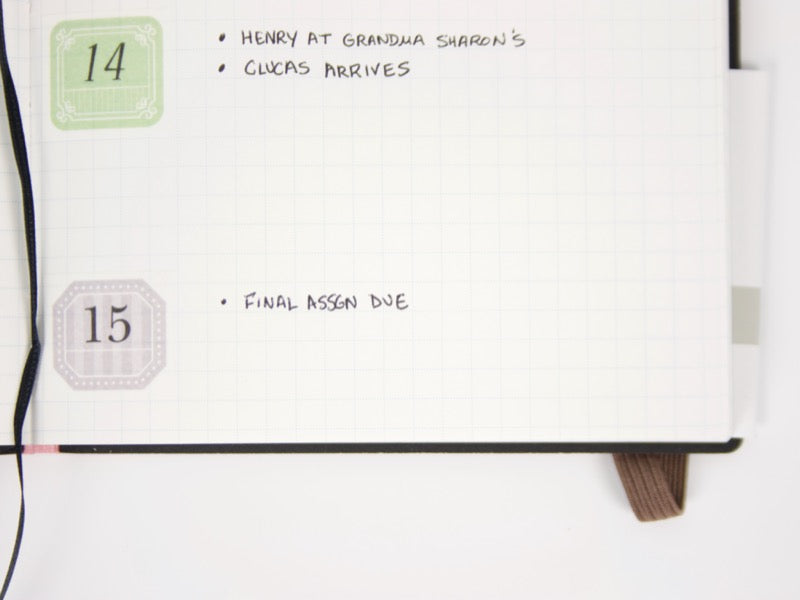 14
• HENRY AT GRANDMA SHARON'S
• CLUCAS ARRIVES
15
• FINAL ASSGN DUE